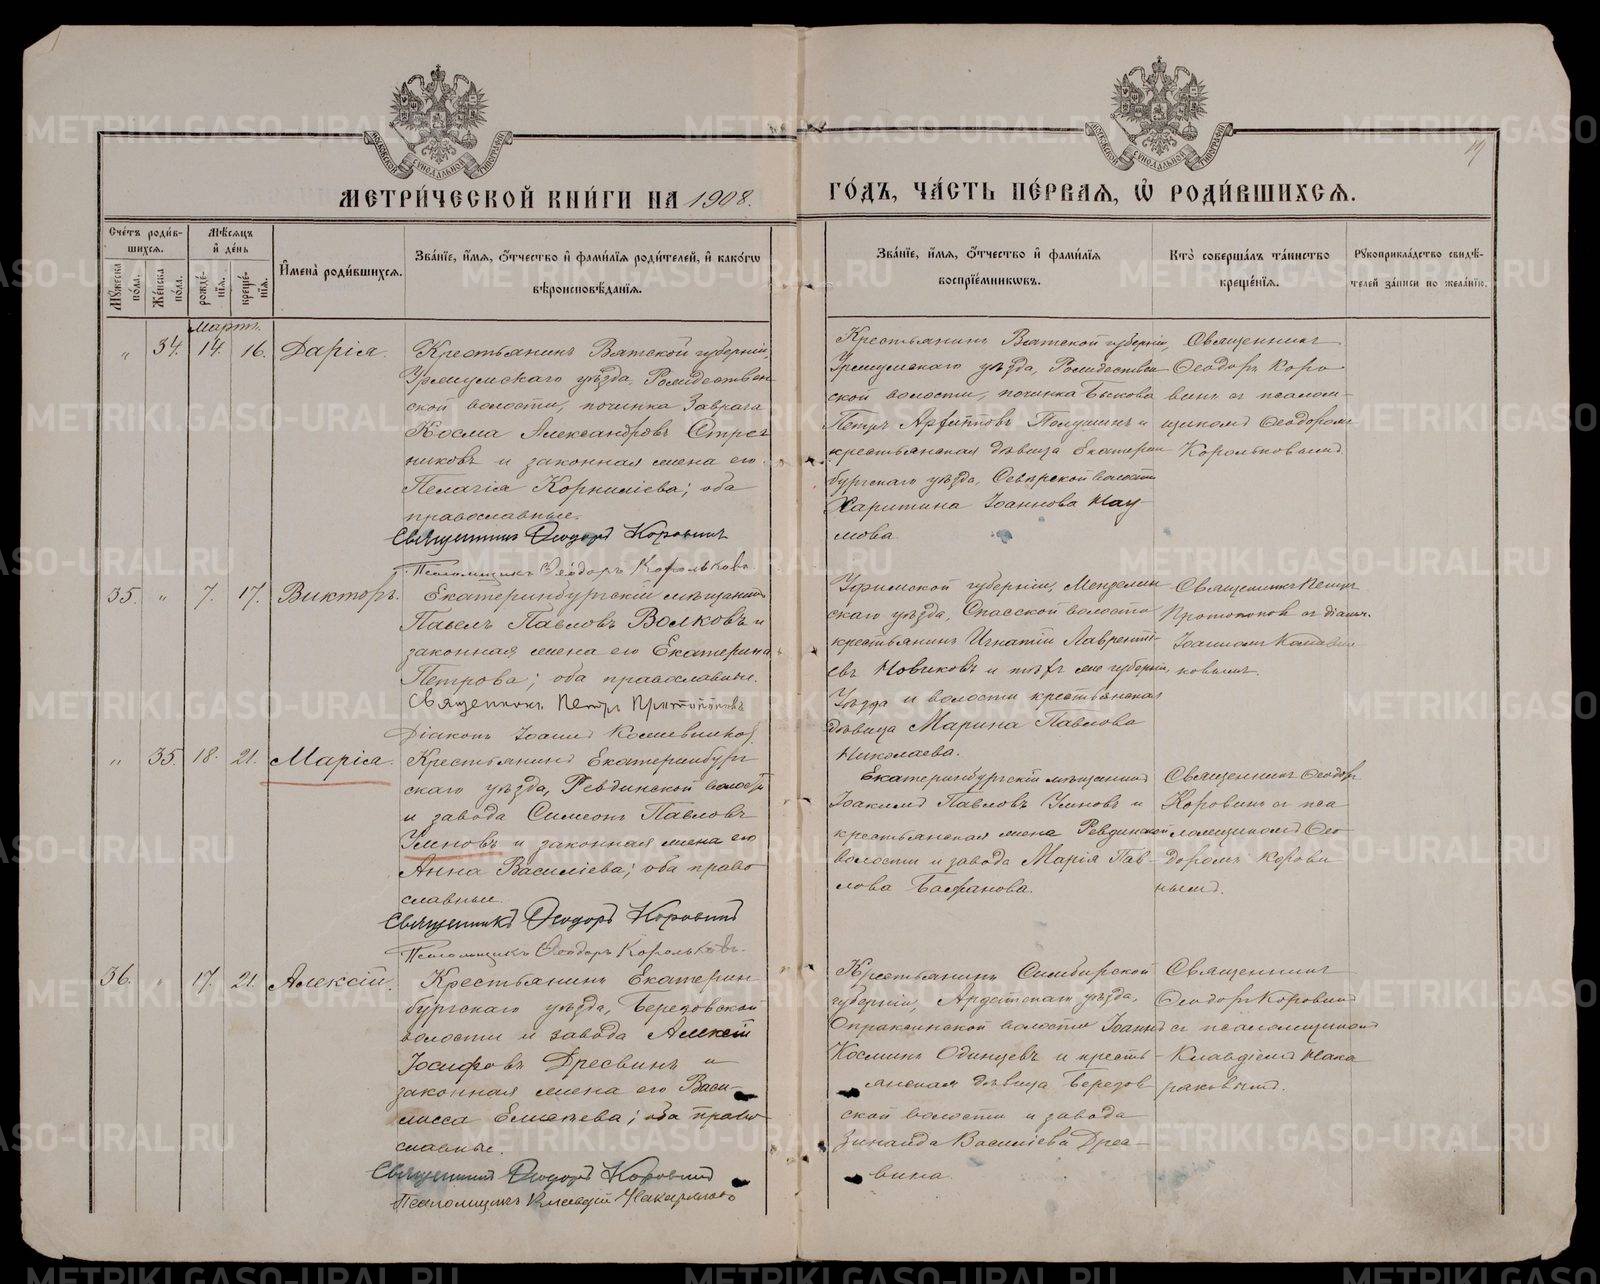 МЕТРИ́ЧЕСКОЙ КНИ́ГИ НА 1908.
ГО́ДЪ, ЧА́СТЬ ПЕ́РВАЯ, Ѽ РОДИ́ВШИХСЯ.
Сче́тъ роди́в-
шихся.
Му́жеска по́ла.
Же́нска по́ла.
Мѣ́сяцъ
и де́нь
рожде́-
нїя.
креще́-
нїя.
И҆мена̀ роди́вшихся.
Зва́нїе, и҆́мя, ѻ҆́тчество и҆ фами́лїя роди́телей, и҆ како́гѡ
вѣроисповѣ́данїя.
Зва́нїе, и҆́мя, ѻ҆́тчество и҆ фами́лїя
воспрїе́мникѡвъ.
Кто̀ соверша́лъ та́инство
креще́нїя.
Рꙋкоприкла́дство свидѣ́-
телей за́писи по жела́нїю.
Мартъ.
" 34. 14. 16. Дарія.
Крестьянинъ Вятской губерніи,
Уржумскаго уѣзда, Рождествен
ской волости, починка
Косма Александровъ Стрѣл
никовъ и законная жена его
Пелагія Корниліева; оба
православные.
Священникъ Ѳеодоръ Коровинъ
Псаломщикъ Ѳеодоръ Корольковъ
Крестьянинъ Вятской губерніи,
Уржумскаго уѣзда, Рождествен
ской волости, починка Быкова
Петръ и
крестьянская дѣвица Екатерин
бургскаго уѣзда, волости
Харитина Іоаннова Нау
мова.
Священникъ
Ѳеодоръ Коро
винъ съ псалом-
щикомъ Ѳеодоромъ
Корольковымъ.
35. " 7. 17. Викторъ.
Екатеринбургскій мѣщанинъ
Павелъ Павловъ Волковъ и
законная жена его Екатерина
Петрова; оба православные.
Священникъ Петръ Протопоповъ
Діаконъ Іоаннъ
Уфимской губерніи, Мензелин
скаго уѣзда, Спасской волости
крестьянинъ Игнатій Лавренті-
евъ Новиковъ и тѣхъ же губерніи,
уѣзда и волости крестьянская
дѣвица Марина Павлова
Николаева.
Священникъ Петръ
Протопоповъ съ діако-
Іоанномъ
ковымъ.
" 35. 18. 21. Марія.
Крестьянинъ Екатеринбург
скаго уѣзда, Ревдинской волости
и завода Симеонъ Павловъ
Умновъ и законная жена его
Анна Василіева; оба право
славные.
Священникъ Ѳеодоръ Коровинъ
Псаломщикъ Ѳеодоръ Корольковъ.
Екатеринбургскій мѣщанинъ
Іоакимъ Павловъ Умновъ и
крестьянская жена Ревдинской
волости и завода Марія Пав-
лова Балганова.
Священникъ Ѳеодоръ
Коровинъ съ пса
ломщикомъ Ѳео
доромъ Корови
нымъ.
36. " 17. 21. Алексій.
Крестьянинъ Екатерин
бургскаго уѣзда, Березовской
волости и завода Алексій
Іосифовъ Дресвинъ и
законная жена его Васи-
лисса Елисѣева; оба право
славные.
Священникъ Ѳеодоръ Коровинъ
Псаломщикъ Клавдій Накаряковъ
Крестьянинъ Симбирской
губерніи, Ардатскаго уѣзда,
Опраксинской волости Іоаннъ
Косминъ Одинцевъ и кресть-
янская дѣвица Березов
ской волости и завода
Зинаида Василіева Дрес-
вина.
Священникъ
Ѳеодоръ Коровинъ
съ псаломщикомъ
Клавдіемъ Нака
ряковымъ.
METRIKI.GASO-URAL.RU